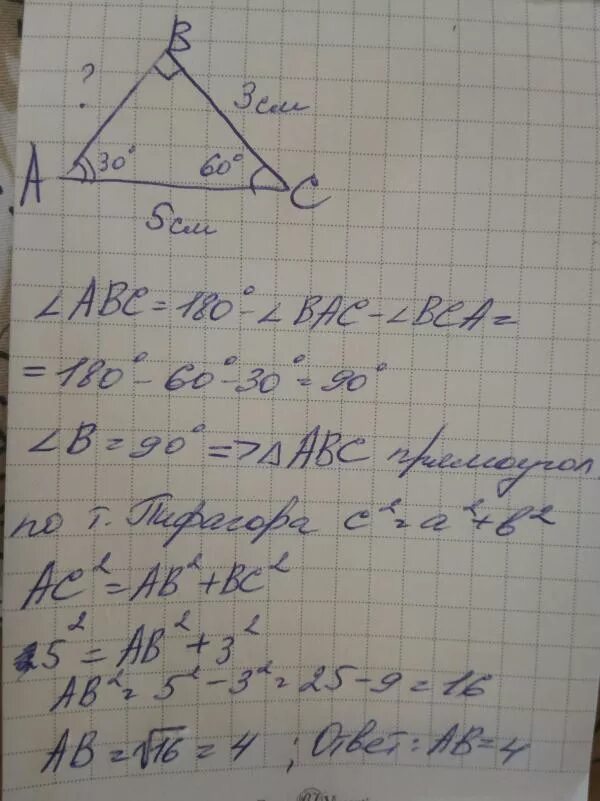 B
?
3см
A 30° 60° C
5см
∠ABC = 180° - ∠BAC - ∠BCA =
= 180° - 60° - 30° = 90°
∠B = 90° => △ABC прямоугол.
по т. Пифагора c² = a² + b²
AC² = AB² + BC²
5² = AB² + 3²
AB² = 5² - 3² = 25 - 9 = 16
AB = √16 = 4 ; Ответ: AB = 4